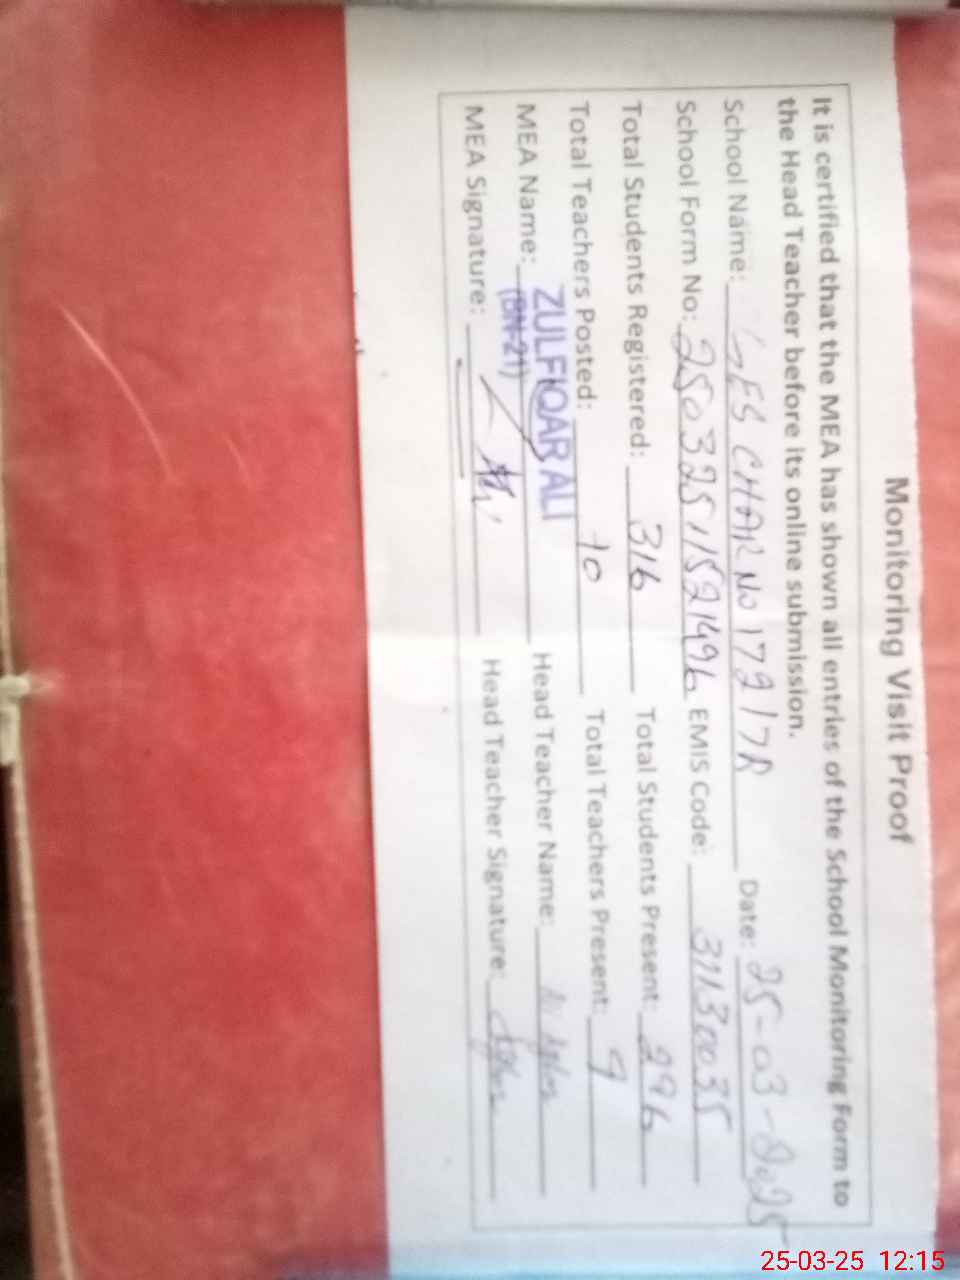 Monitoring Visit Proof
It is certified that the MEA has shown all entries of the School Monitoring Form to
the Head Teacher before its online submission.
School Name: GES CHAK NO 172 / 7R Date: 25-03-2025
School Form No: EMIS Code: 31130035
Total Students Registered: 316 Total Students Present: 296
Total Teachers Posted: 10 Total Teachers Present: 9
MEA Name: ZULFIQAR ALI Head Teacher Name:
(BN-21)
MEA Signature: Head Teacher Signature:
25-03-25 12:15